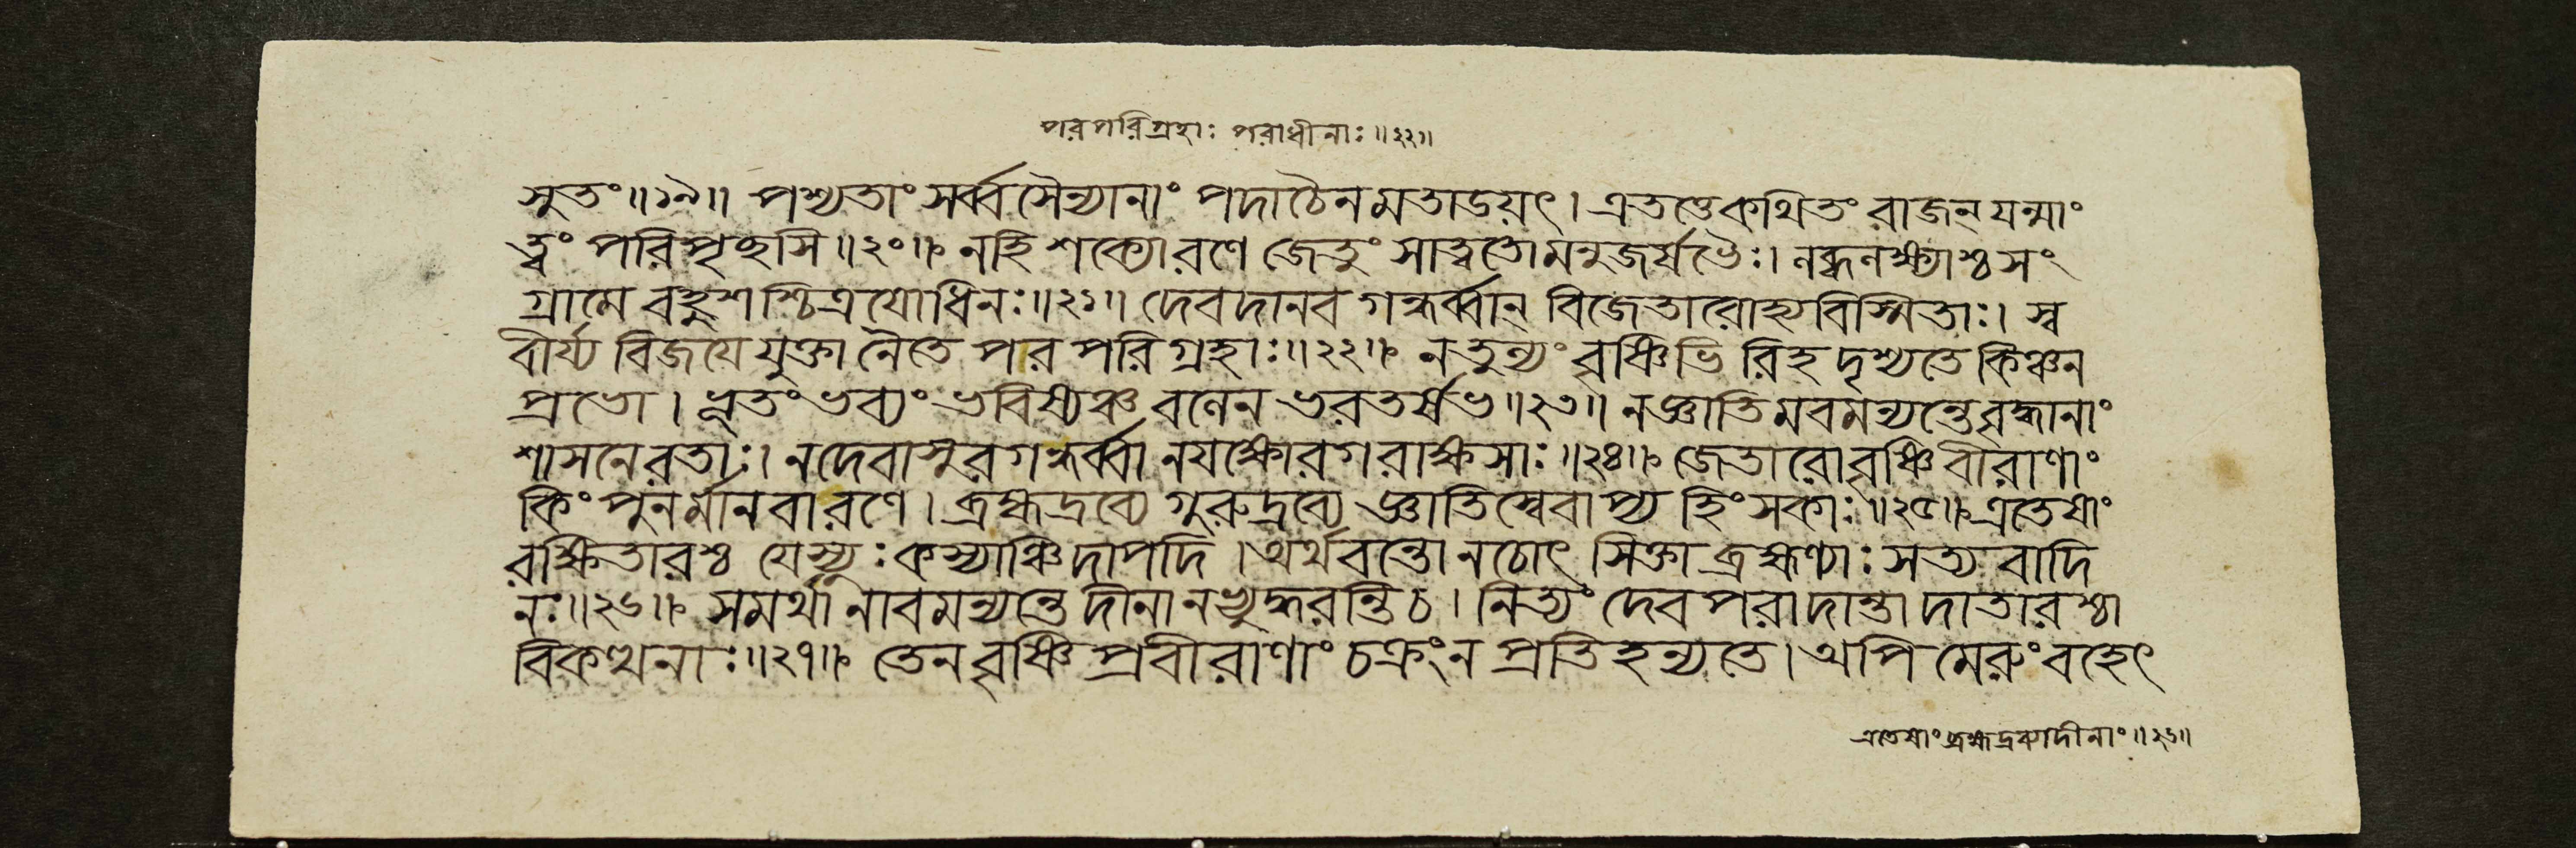 পরপরিগ্রহাঃ পরাধীনাঃ॥২২॥
সুতং॥১৯॥ পশ্যতাং সর্ব্বসৈন্যানাং পদাচৈনমতাডয়ৎ। এতত্তেকথিতং রাজন্ যন্মাং
ত্বং পরিপৃচ্ছসি॥২০॥ নহি শক্যোরণে জেতুং সাত্বতোমনুজর্ষভৈঃ। লব্ধলক্ষ্যাশ্চসং
গ্রামে বহুশশ্চিত্রযোধিনঃ॥২১॥ দেবদানবগন্ধর্ব্বান্ বিজেতারোহ্যবিস্মিতাঃ। স্ব
বীর্য্যবিজয়ে যুক্তা নৈতে পরপরিগ্রহাঃ॥২২॥ নতুল্যং বৃষ্ণিভিরিহ দৃশ্যতে কিঞ্চন
প্রভো। ভূতং ভব্যং ভবিষ্যঞ্চ বলেন ভরতর্ষভ॥২৩॥ নজ্ঞাতিমবমন্যন্তেবৃদ্ধানাং
শাসনেরতাঃ। নদেবাসুরগন্ধর্ব্বা নযক্ষোরগরাক্ষসাঃ॥২৪॥ জেতারোবৃষ্ণিবীরাণাং
কিং পুনর্ম্মানবারণে। ব্রহ্মদ্রব্যে গুরুদ্রব্যে জ্ঞাতিস্বেবাপ্য হিংসকাঃ॥২৫॥ এতেষাং
রক্ষিতারশ্চ যেস্যুঃ কস্যাঞ্চিদাপদি। অর্থবন্তো নচোৎসিক্তা ব্রহ্মণ্যাঃ সত্যবাদি
নঃ॥২৬॥ সমর্থা নাবমন্যন্তে দীনানভ্যুদ্ধরন্তি চ। নিত্যং দেবপরাদান্তা দাতারশ্চা
বিকত্থনাঃ॥২৭॥ তেন বৃষ্ণিপ্রবীরাণাং চক্রং ন প্রতিহন্যতে। অপি মেরুং বহেৎ
এতেষাং ব্রহ্মদ্রব্যাদীনাং॥২৬॥